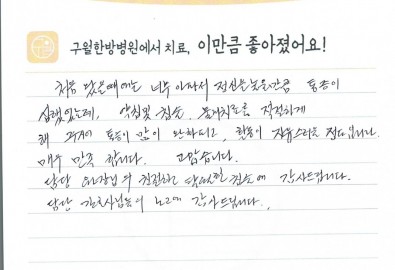 구월한방병원에서 치료, 이만큼 좋아졌어요!
처음 왔을때에는 너무 아파서 정신을 놓을만큼 통증이
심했었는데, 약침및 침술, 물리치료를 적절하게
해 주어 통증이 많이 완화되고, 활동이 자유스러운 정도입니다.
매우 만족 합니다. 고맙습니다.
담당 원장님의 친절하고 침술에 감사드립니다.
담당 간호사님들의 노고에 감사드립니다.